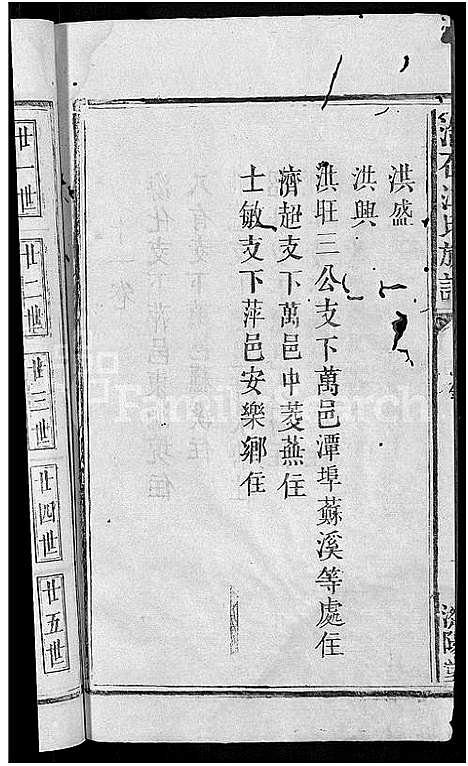 洪盛
洪興
洪駐三公支下萬邑潭埠蘇溪等處住
濟超支下萬邑中菱燕住
士敏支下萍邑安樂鄉住
廿一世
廿二世
廿三世
廿四世
廿五世